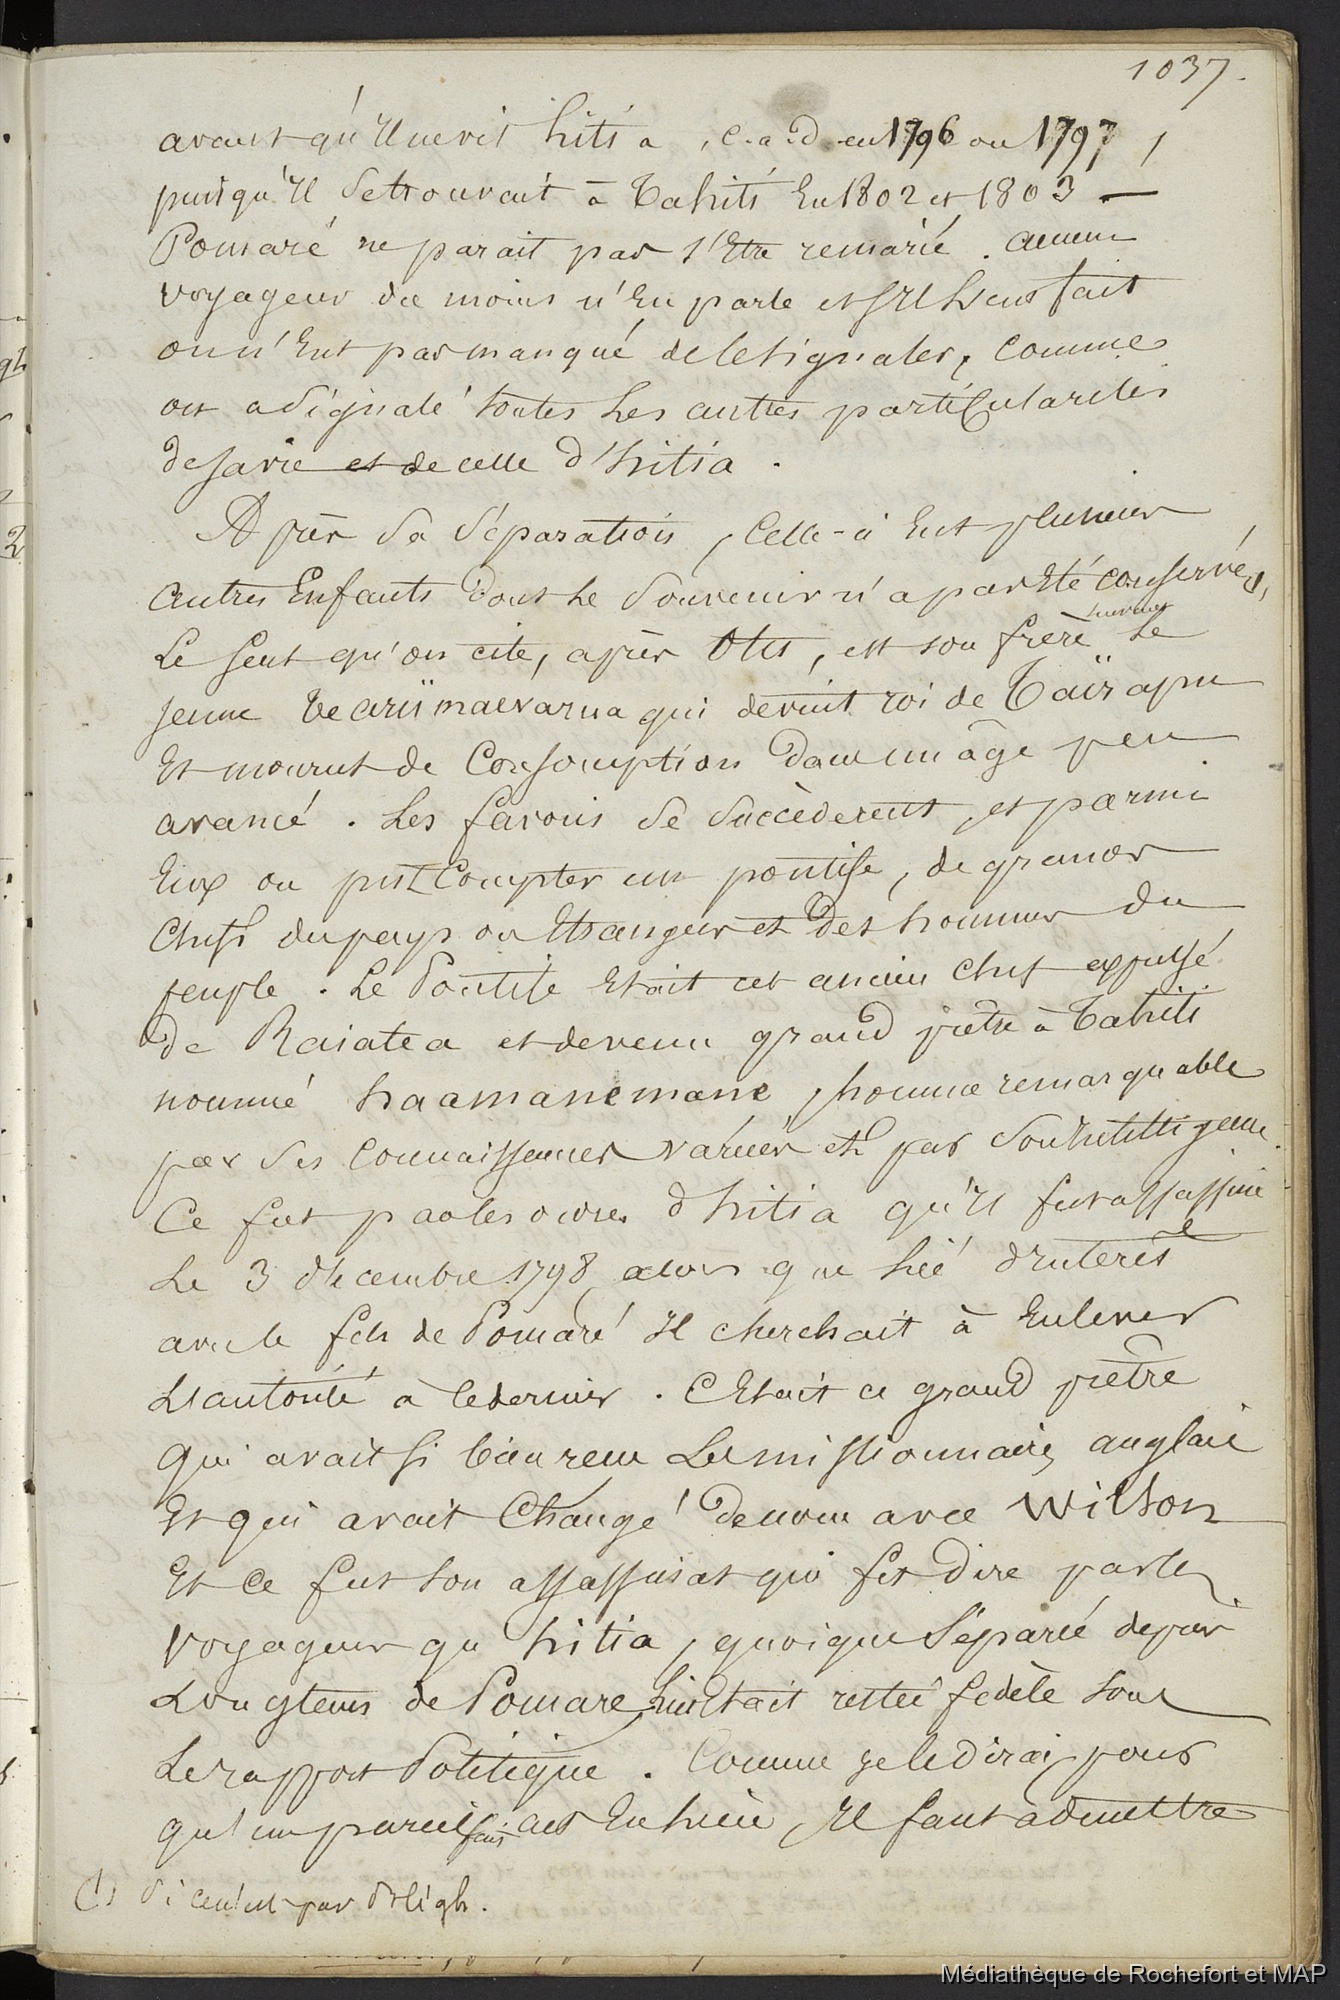 1037.
avant qu'il ne vit hitia, c.a.d. en 1796 ou 1797,
puisqu'il se trouvait à Tahiti En 1802 et 1803 —
Pomaré ne parait pas s'Etre remarié. aucun
voyageur du moins n'En parle et s'il l'eut fait
on n'Eut pas manqué de le signaler, comme
on a signalé toutes les autres particularités
de sa vie et de celle d'hitia.
Après sa séparation, Celle-ci Eut plusieurs
autres Enfants dont le souvenir n'a pas Eté conservé,
Le seul qu'on cite, après Otu, est son frère
le
jeune Te arii maevarua qui devint roi de Taïrapu
Et mourut de Consomption dans un âge peu
avancé. Les favoris se succèderent, et parmi
Eux on put Compter un pontife, de grands
Chefs du pays ou Etrangers et des hommes du
peuple. Le Pontife Etait cet ancien Chef expulsé
de Raiatea et devenu grand prêtre à Tahiti
nommé haamanemane, homme remarquable
par ses connaissances variées et par son Intelligence.
Ce fut par les ordres d'hitia qu'il fut assassiné
Le 3 décembre 1798, alors que lié d'Interêt
avec le fils de Pomaré Il cherchait à Enlever
L'autorité à ce dernier. C'Etait ce grand prêtre
qui avait si bien reçu Les missionnaires anglais
Et qui avait Changé de nom avec Wilson
Et ce fut son assassinat qui fit dire par les
voyageurs qu'hitia, quoique séparée depuis
Longtems de Pomare, lui Etait restée fidèle sous
Le rapport Politique. Comme je le dirai, pour
qu'un pareil fait ait Eu lieu, Il faut admettre
(1) si ce n'est par Bligh.
Médiathèque de Rochefort et MAP